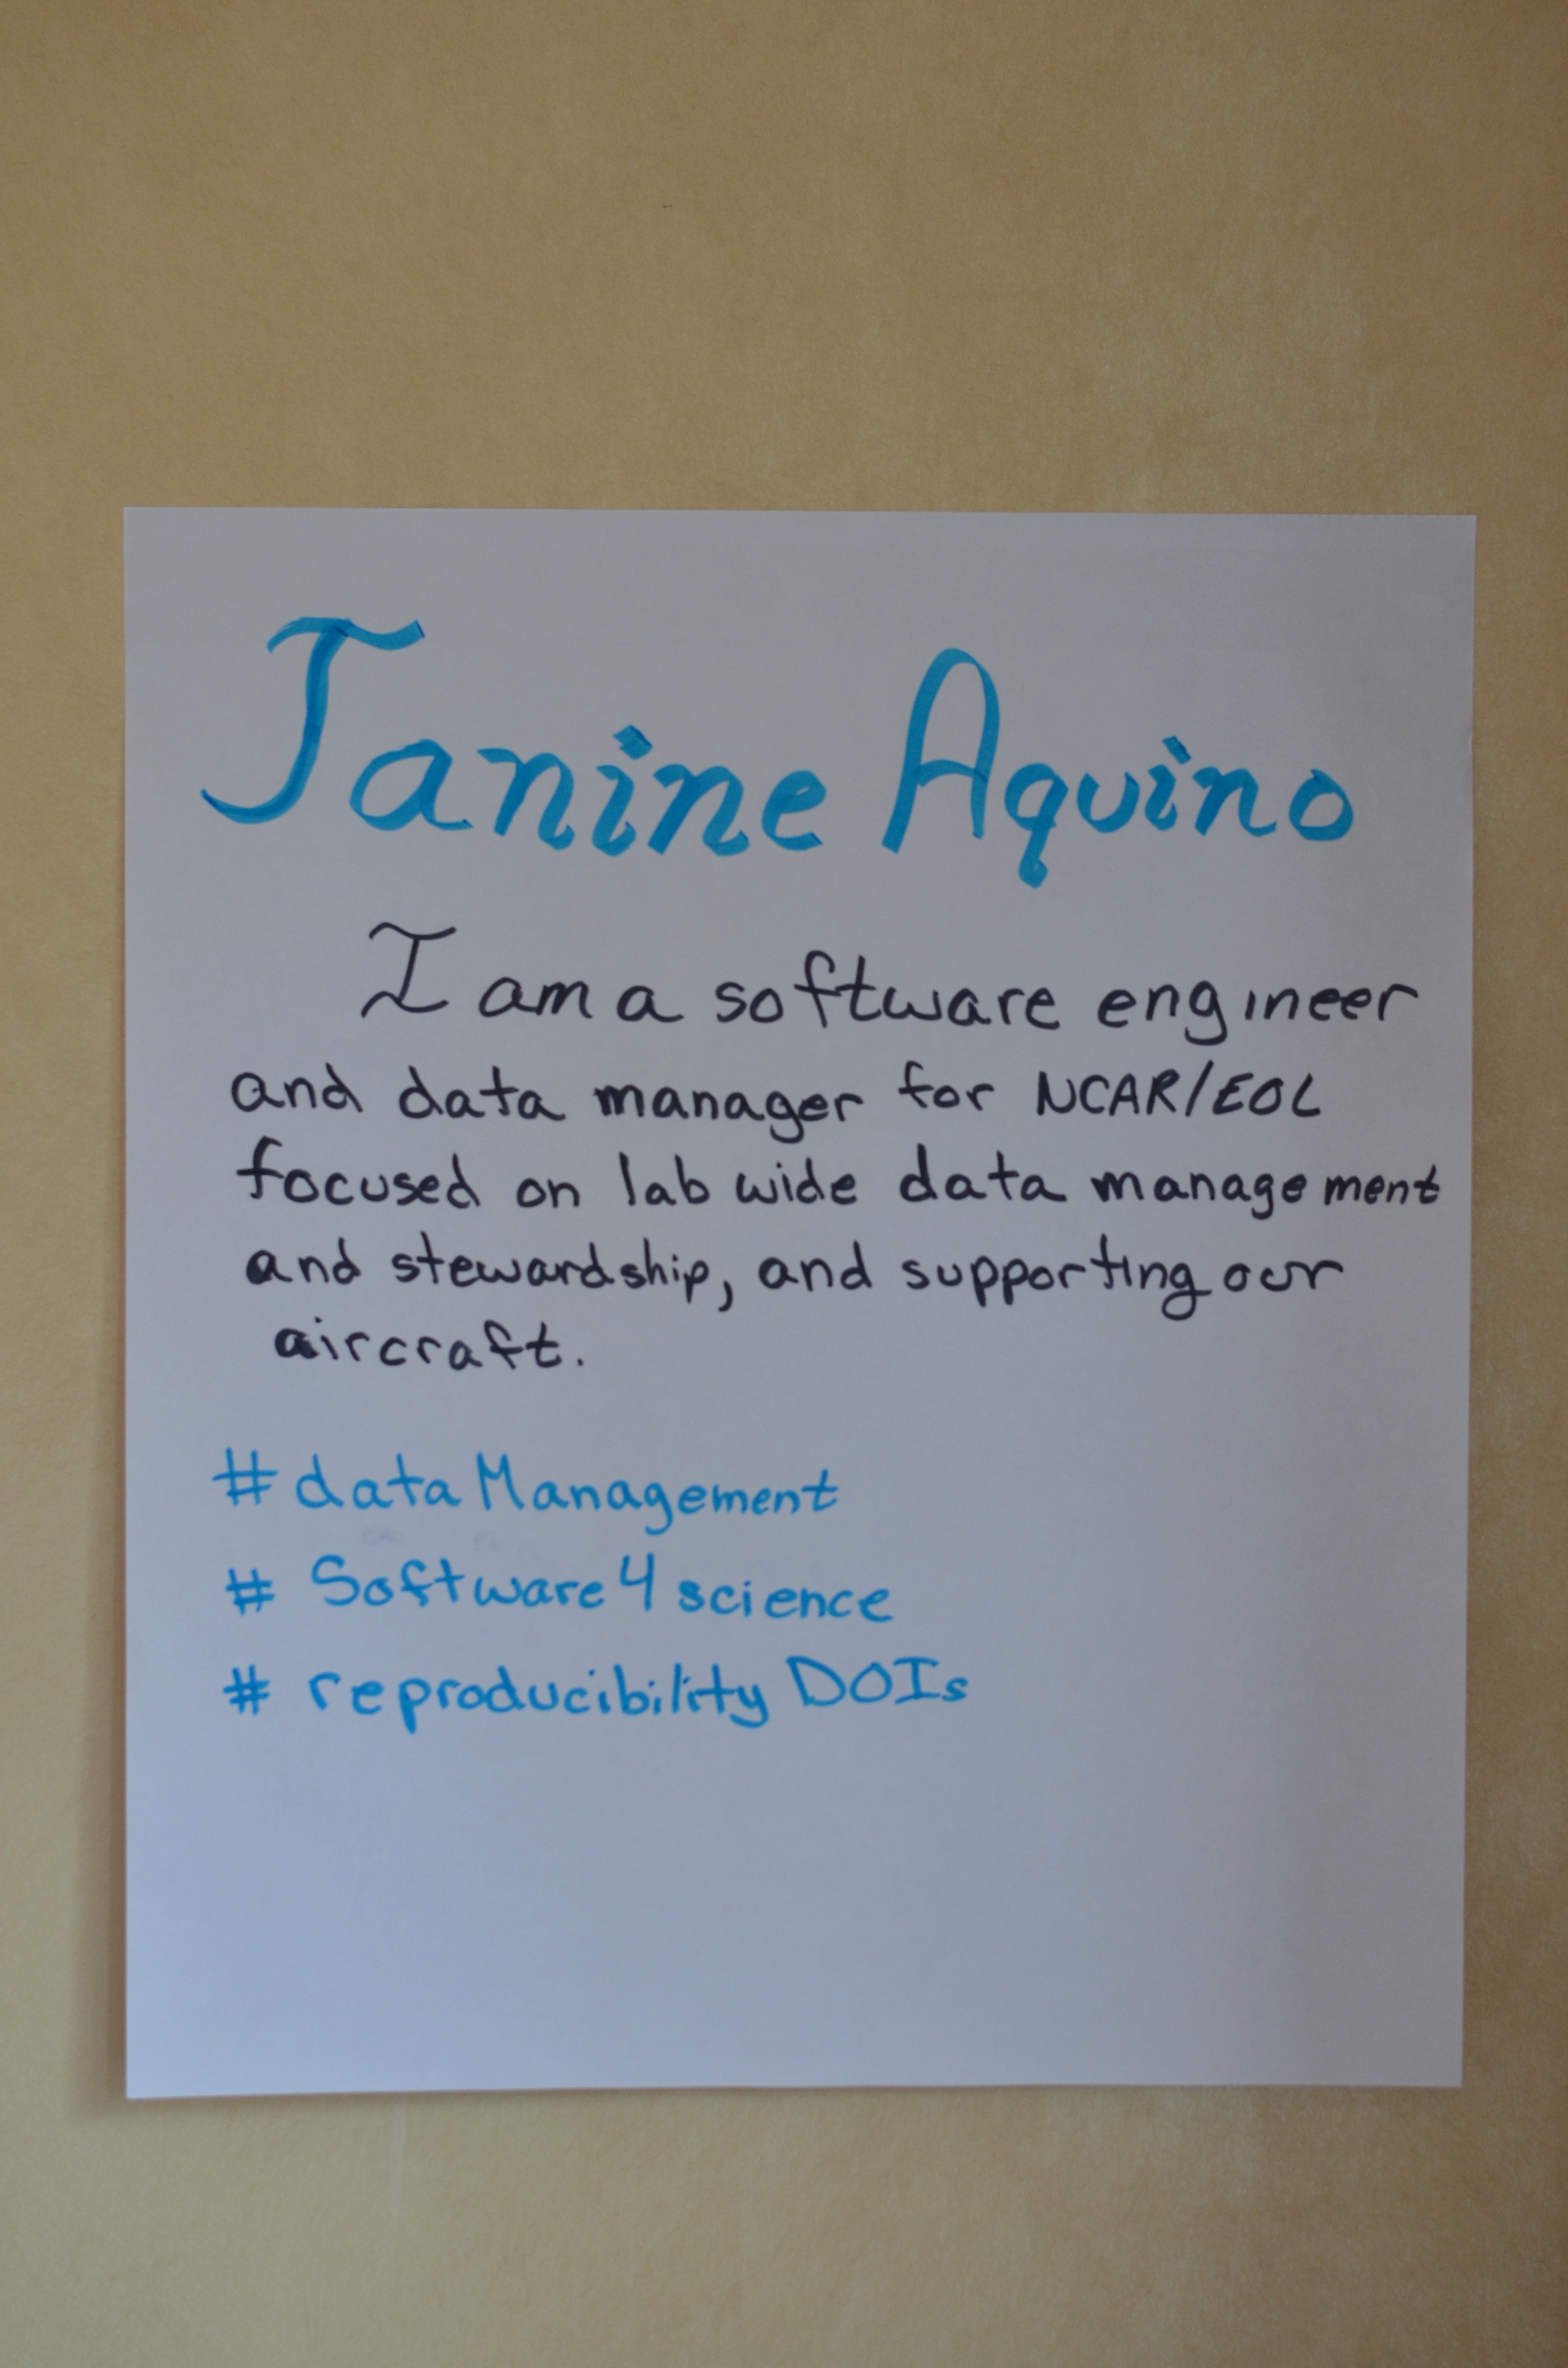 Janine Aquino
I am a software engineer
and data manager for NCAR/EOL
focused on lab wide data management
and stewardship, and supporting our
aircraft.
# dataManagement
# Software4science
# reproducibility DOIs